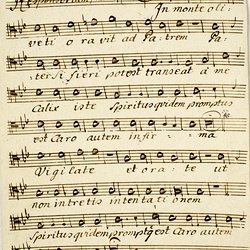 Responsorium. In monte oli:
veti oravit ad Patrem Pa:
ter si fieri potest transeat a me
Calix iste Spiritus quidem promptus
est Caro autem infir::ma
Vigilate et ora:te ut
non intretis in tentationem
Spiritus quidem promptq est Caro autem